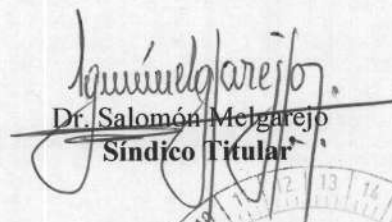 Dr. Salomón Melgarejo
Síndico Titular
12 13 14